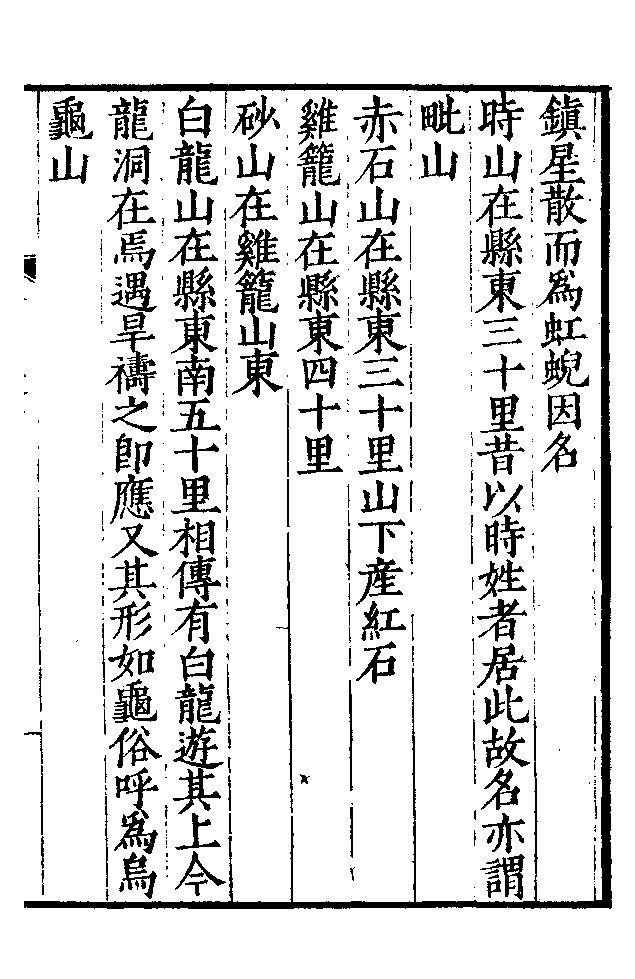 鎮星散而為虹蜺因名
時山在縣東三十里昔以時姓者居此故名亦謂
毗山
赤石山在縣東三十里山下産紅石
雞籠山在縣東四十里
砂山在雞籠山東
白龍山在縣東南五十里相傳有白龍遊其上今
龍洞在焉遇旱禱之即應又其形如龜俗呼為烏
龜山